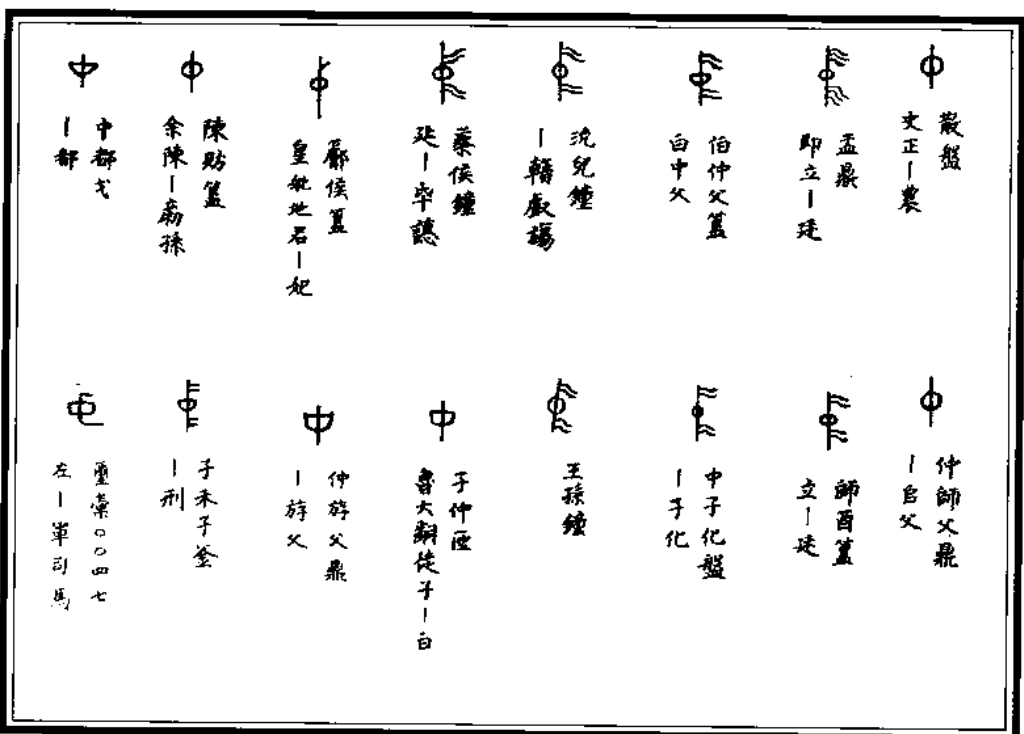 散盤
史正丨農
盂鼎
即立丨廷
伯仲父簋
白中父
沇兒鐘
丨
蔡侯鐘
延丨
侯簋
皇妣君丨妃
陳貯簋
余陳丨裔孫
中都戈
丨都
仲師父鼎
丨𠂤父
師酉簋
立丨廷
中子化盤
丨子化
王孫鐘
子仲匜
魯大嗣徒子丨白
仲斿父鼎
丨斿父
子禾子釜
丨刑
璽彙〇〇四七
左丨軍司馬